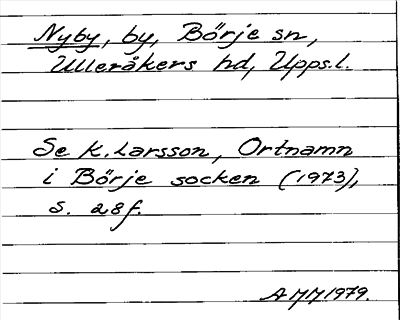 Nyby, by, Börje sn,
Ulleråkers hd, Upps.l.
Se K. Larsson, Ortnamn
i Börje socken (1973),
s. 28f.
AMM 1979.